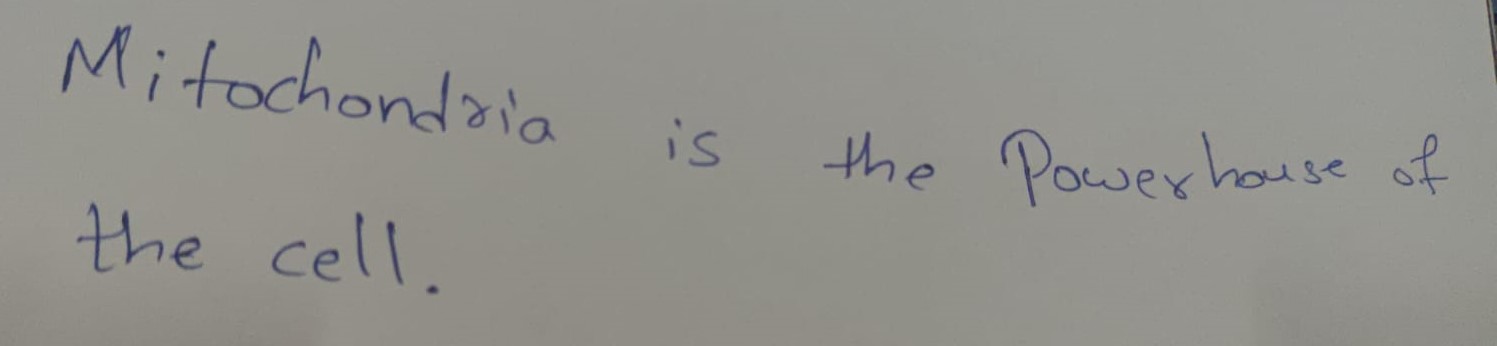 Mitochondria is the Powerhouse of
the cell.